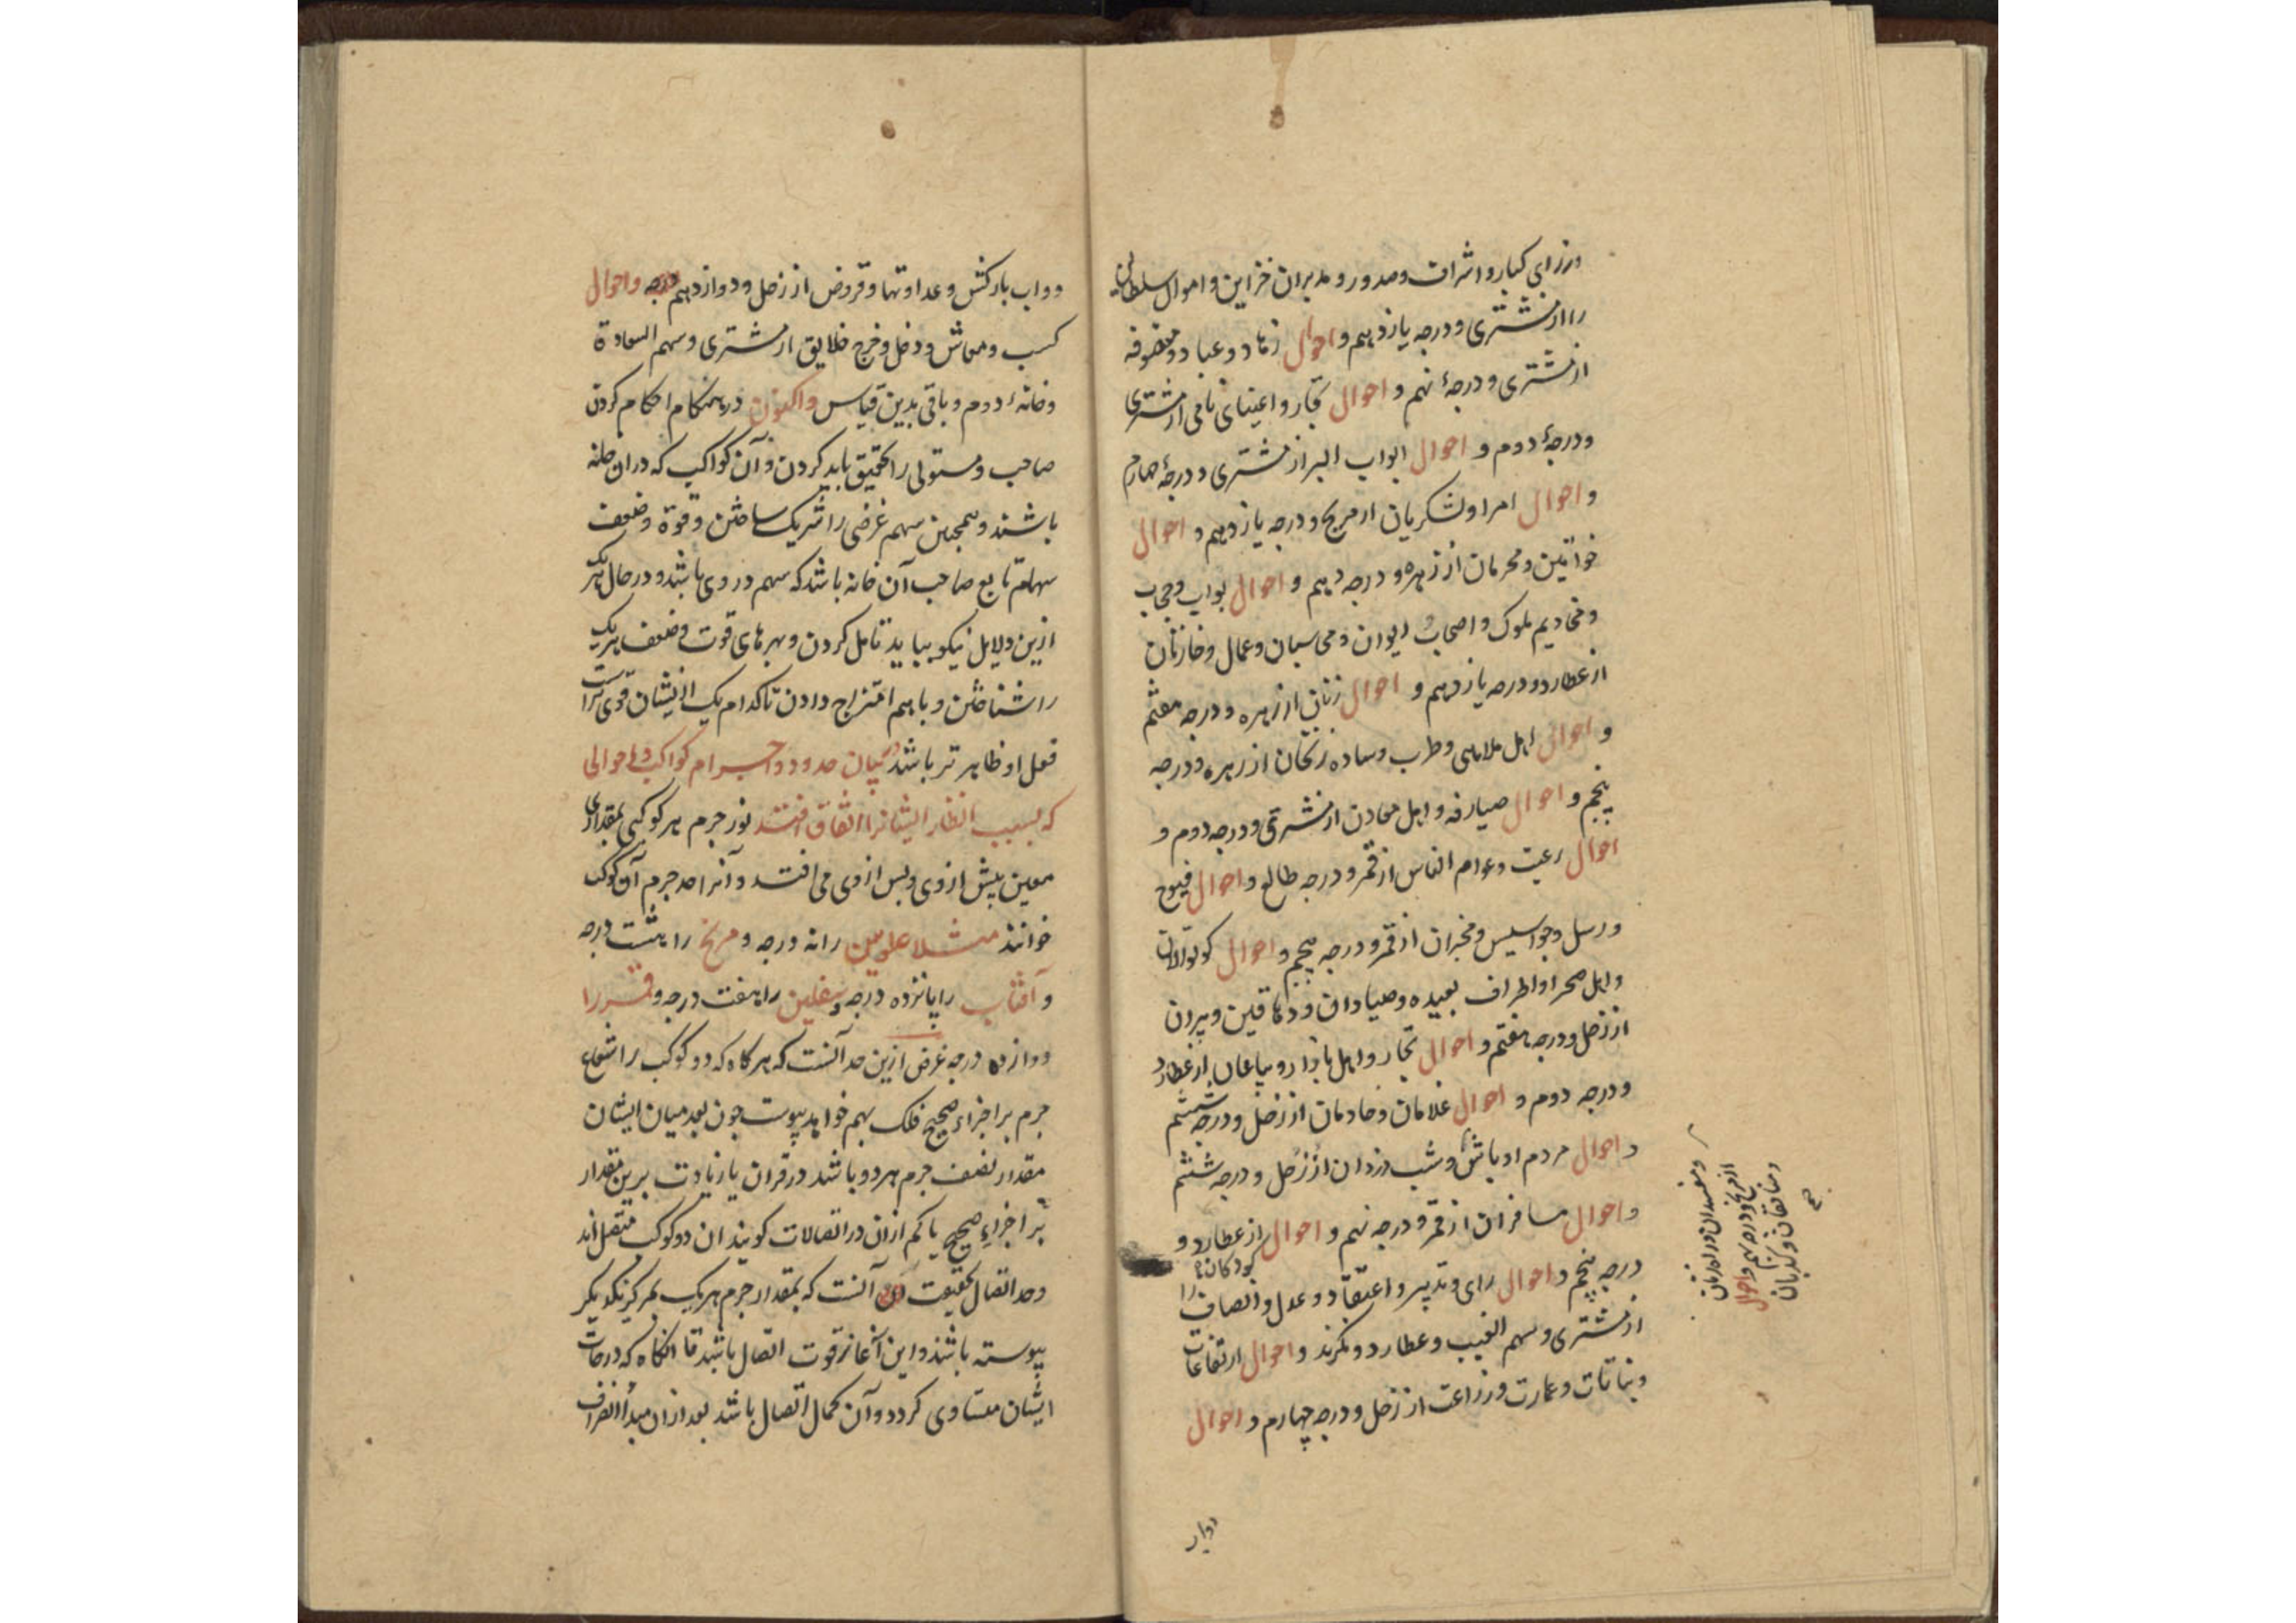 وزرای کبار و اشراف و صدور و مدبران خزاین و اموال سلطانی
را از مشتری و درجه یازدهم و احوال زهاد و عباد و متصوفه
از مشتری و درجهٔ نهم و احوال تجار و اغنیای نامی از مشتری
و درجهٔ دوم و احوال ابواب البر از مشتری و درجهٔ چهارم
و احوال امرا و لشکریان از مریخ و درجه یازدهم و احوال
خواتین و محرمان از زهره و درجه دهم و احوال بواب و حجاب
و مخادیم ملوک و اصحاب دیوان و محاسبان و عمال و خازنان
از عطارد و درجه یازدهم و احوال زنان از زهره و درجه هفتم
و احوال اهل ملاهی و طرب و ساده زنخان از زهره و درجه
پنجم و احوال صیارفه و اهل معادن از مشتری و درجه دوم و
احوال رعیت و عوام الناس از قمر و درجه طالع و احوال فیوج
و رسل و جواسیس و مخبران از قمر و درجه پنجم و احوال کوتوالان
و اهل صحرا و اطراف بعیده و صیادان و دهاقین و پیران
از زحل و درجه هفتم و احوال تجار و اهل بازار و بیاعان از عطارد
و درجه دوم و احوال غلامان و خادمان از زحل و درجه ششم
و احوال مردم اوباش و شب دزدان از زحل و درجه ششم
و احوال مسافران از قمر و درجه نهم و احوال از عطارد و
کودکانرا
درجه پنجم و احوال رای و تدبیر و اعتقاد و عدل و انصاف را
از مشتری و سهم الغیب و عطارد و احوال ارتفاعات
و نباتات و عمارت و زراعت از زحل و درجه چهارم و احوال
و مفسدان
از مریخ و درجه و احوال
و منافقان و
صح
دواب
دواب بارکش و عداوتها و قروض از زحل و دوازدهم درجه و احوال
کسب و معاش و دخل و خرج خلایق از مشتری و سهم السعادة
و خانهٔ دوم و باقی بدین قیاس و اکنون در هنکام احکام کردن
صاحب و مستولی را تحقیق باید کردن و آن کواکب که در ان خانه
باشند و همچنین سهم غرضی را شریک ساختن و قوة و ضعف
سهام تابع صاحب آن خانه باشد که سهم در وی باشد و در حال هر یک
ازین دلایل نیکو بباید تامل کردن و بهرهای قوت و ضعف هر یک
را شناختن و با هم امتزاج دادن تا کدام یک از ایشان قوی تر است
فعل او ظاهر تر باشد بیان حدود اجرام کواکب و احوالی
که بسبب انظار ایشانرا اتفاق افتد نور جرم هر کوکبی بمقداری
معین پیش از وی و پس از وی می افتد و آنرا حد جرم آن کوکب
خوانند مثلا علویین را نه درجه و مریخ را هشت درجه
و آفتاب را پانزده درجه و سفلیین را هفت درجه و قمر را
دوازده درجه غرض ازین حد آنست که هرکاه که دو کوکب را شعاع
جرم بر اجزاء صحیح فلک بهم خواهد پیوست چون بعد میان ایشان
مقدار نصف جرم هر دو باشد در قران یا زیادت برین مقدار
بر اجزاء صحیح یا کم از ان در اتصالات کویند ان دو کوکب متصل اند
و حد اتصال بحقیقت آنست که بمقدار جرم هر یک بمرکز یکدیکر
پیوسته باشند و این آغاز قوت اتصال باشد تا انکاه که درجات
ایشان متساوی کردد و آن کمال اتصال باشد بعد از ان مبدأ انصراف